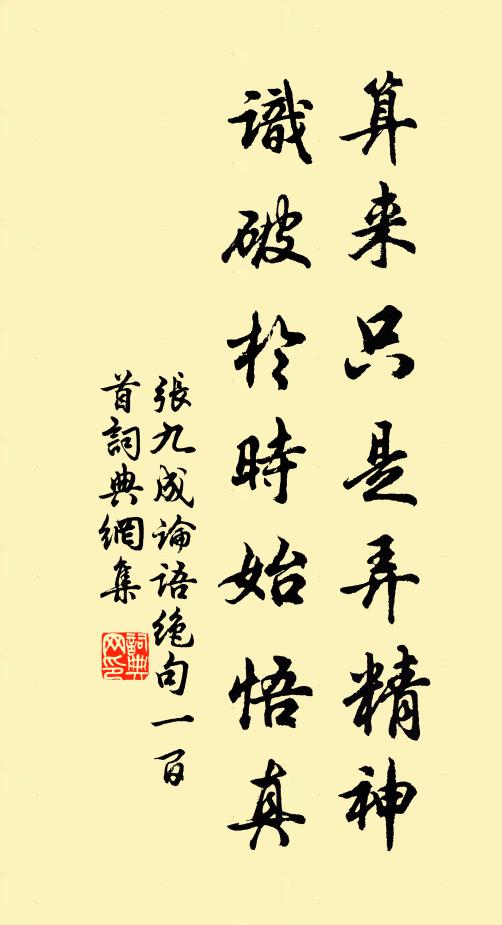 算来只是弄精神
識破於時始悟真
張九成論語絶句一百
首詞典網集
詞典网印